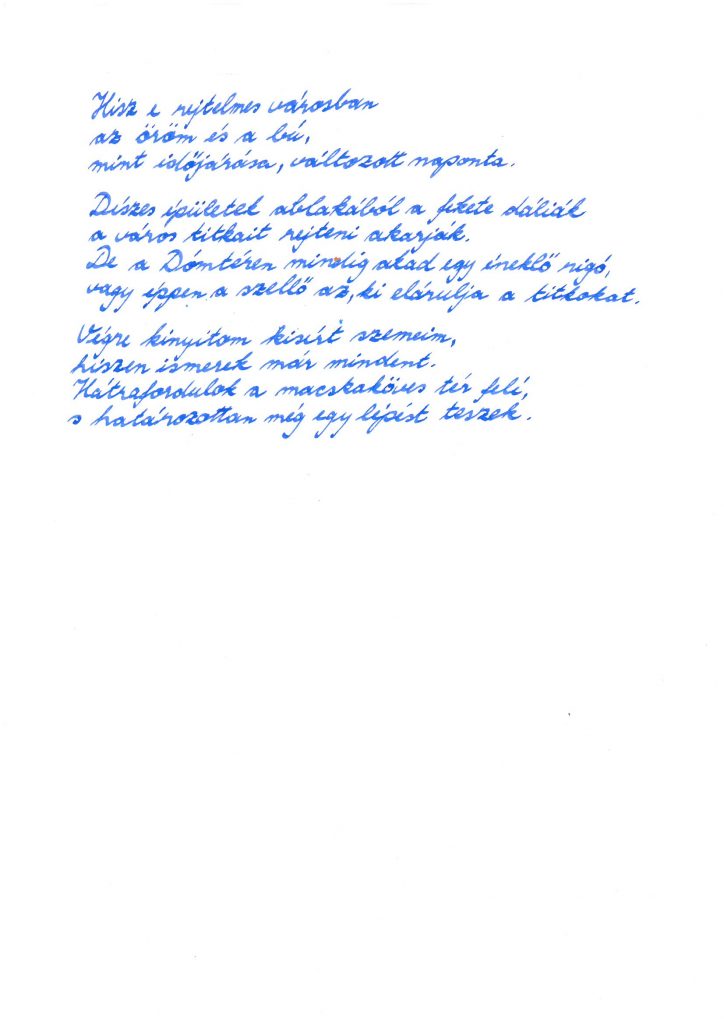 Hisz e rejtelmes városban
az öröm és a bú,
mint időjárása, változott naponta.
Díszes épületek ablakából a fekete dáliák
a város titkait rejteni akarják.
De a Dómtéren mindig akad egy éneklő rigó,
vagy éppen a szellő az, ki elárulja a titkokat.
Végre kinyitom kisírt szemeim,
hiszen ismerek már mindent.
Hátrafordulok a macskaköves tér felé,
s határozottan még egy lépést teszek.